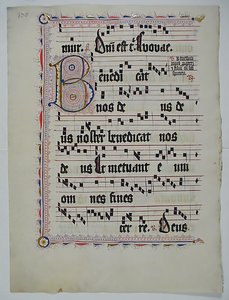 mur. Dñi est. Euouae.
Benedi cat
nos de us de
us noster benedicat nos
de us et metuant e um
om nes fines
ter re. Deus